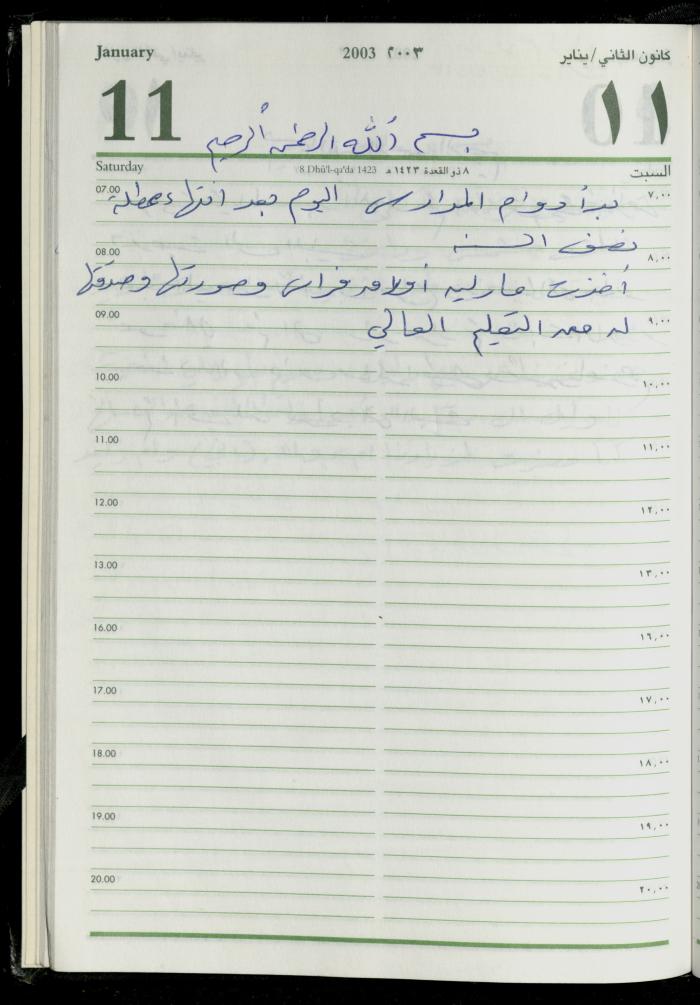 January 2003 ٢٠٠٣ كانون الثاني/يناير
11 ١١
بسم الله الرحمن الرحيم
Saturday 8 Dhū'l-qa'da 1423 ٨ ذو القعدة ١٤٢٣ هـ السبت
07.00 ٧,٠٠
بدأ دوام المدارس اليوم بعد انتهاء عطلة
نصف السنه
08.00 ٨,٠٠
أخذت أوراق فراس وصورتها وصدقتها
09.00 ٩,٠٠
له من التعليم العالي
10.00 ١٠,٠٠
11.00 ١١,٠٠
12.00 ١٢,٠٠
13.00 ١٣,٠٠
16.00 ١٦,٠٠
17.00 ١٧,٠٠
18.00 ١٨,٠٠
19.00 ١٩,٠٠
20.00 ٢٠,٠٠